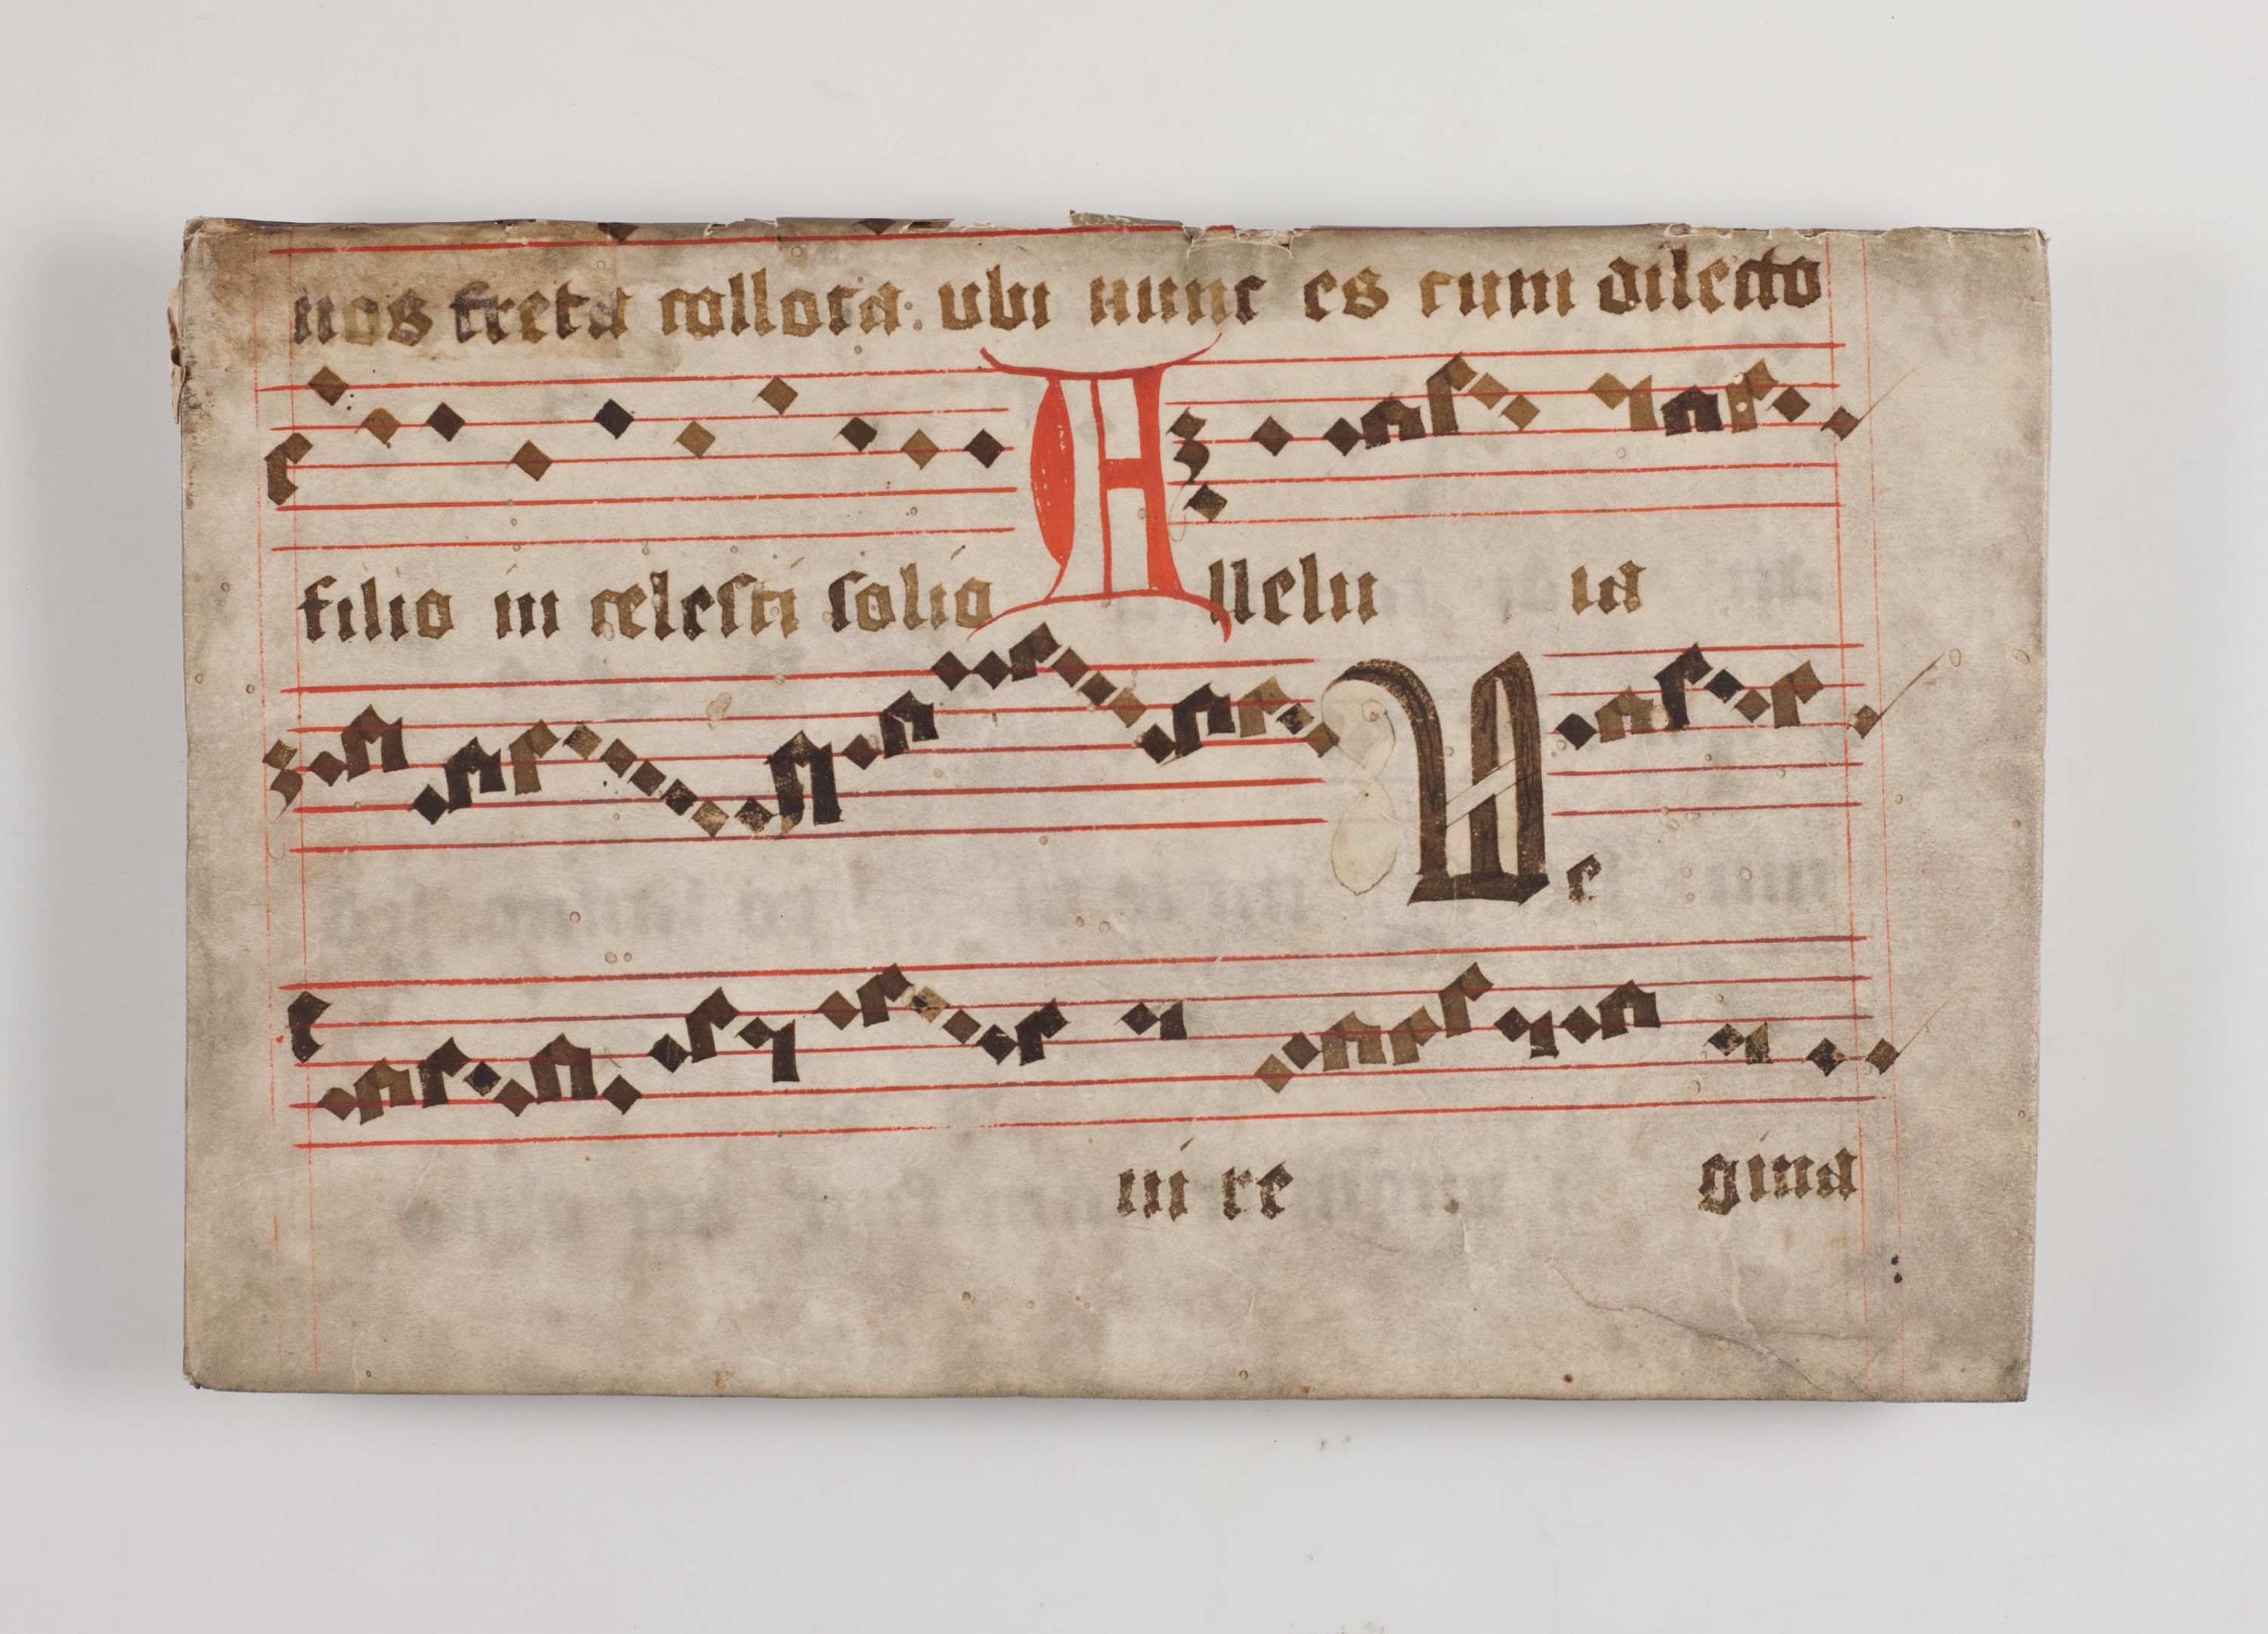 nos freta colloca. ubi nunc es cum dilecto
filio in celesti solio Allelu ia
Ve
ni re gina